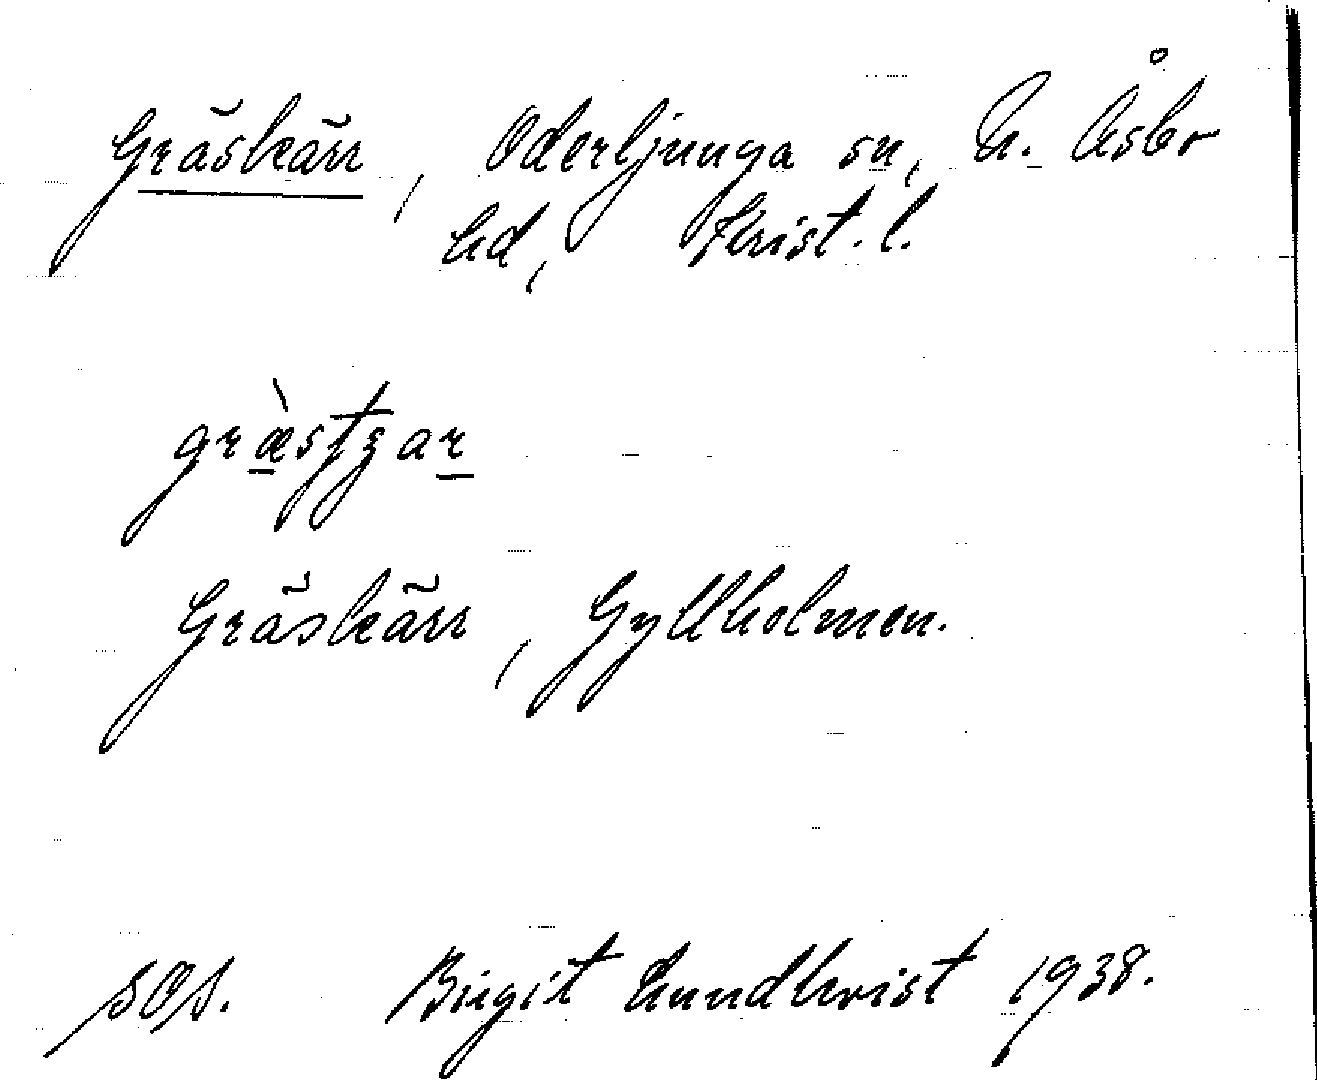 Gräskärr, Oderljunga sn, N. Åsbo
hd, Krist. l.
græ̀stʒar
Gräskärr, Gyllholmen.
SOS. Birgit Lundkvist 1938.